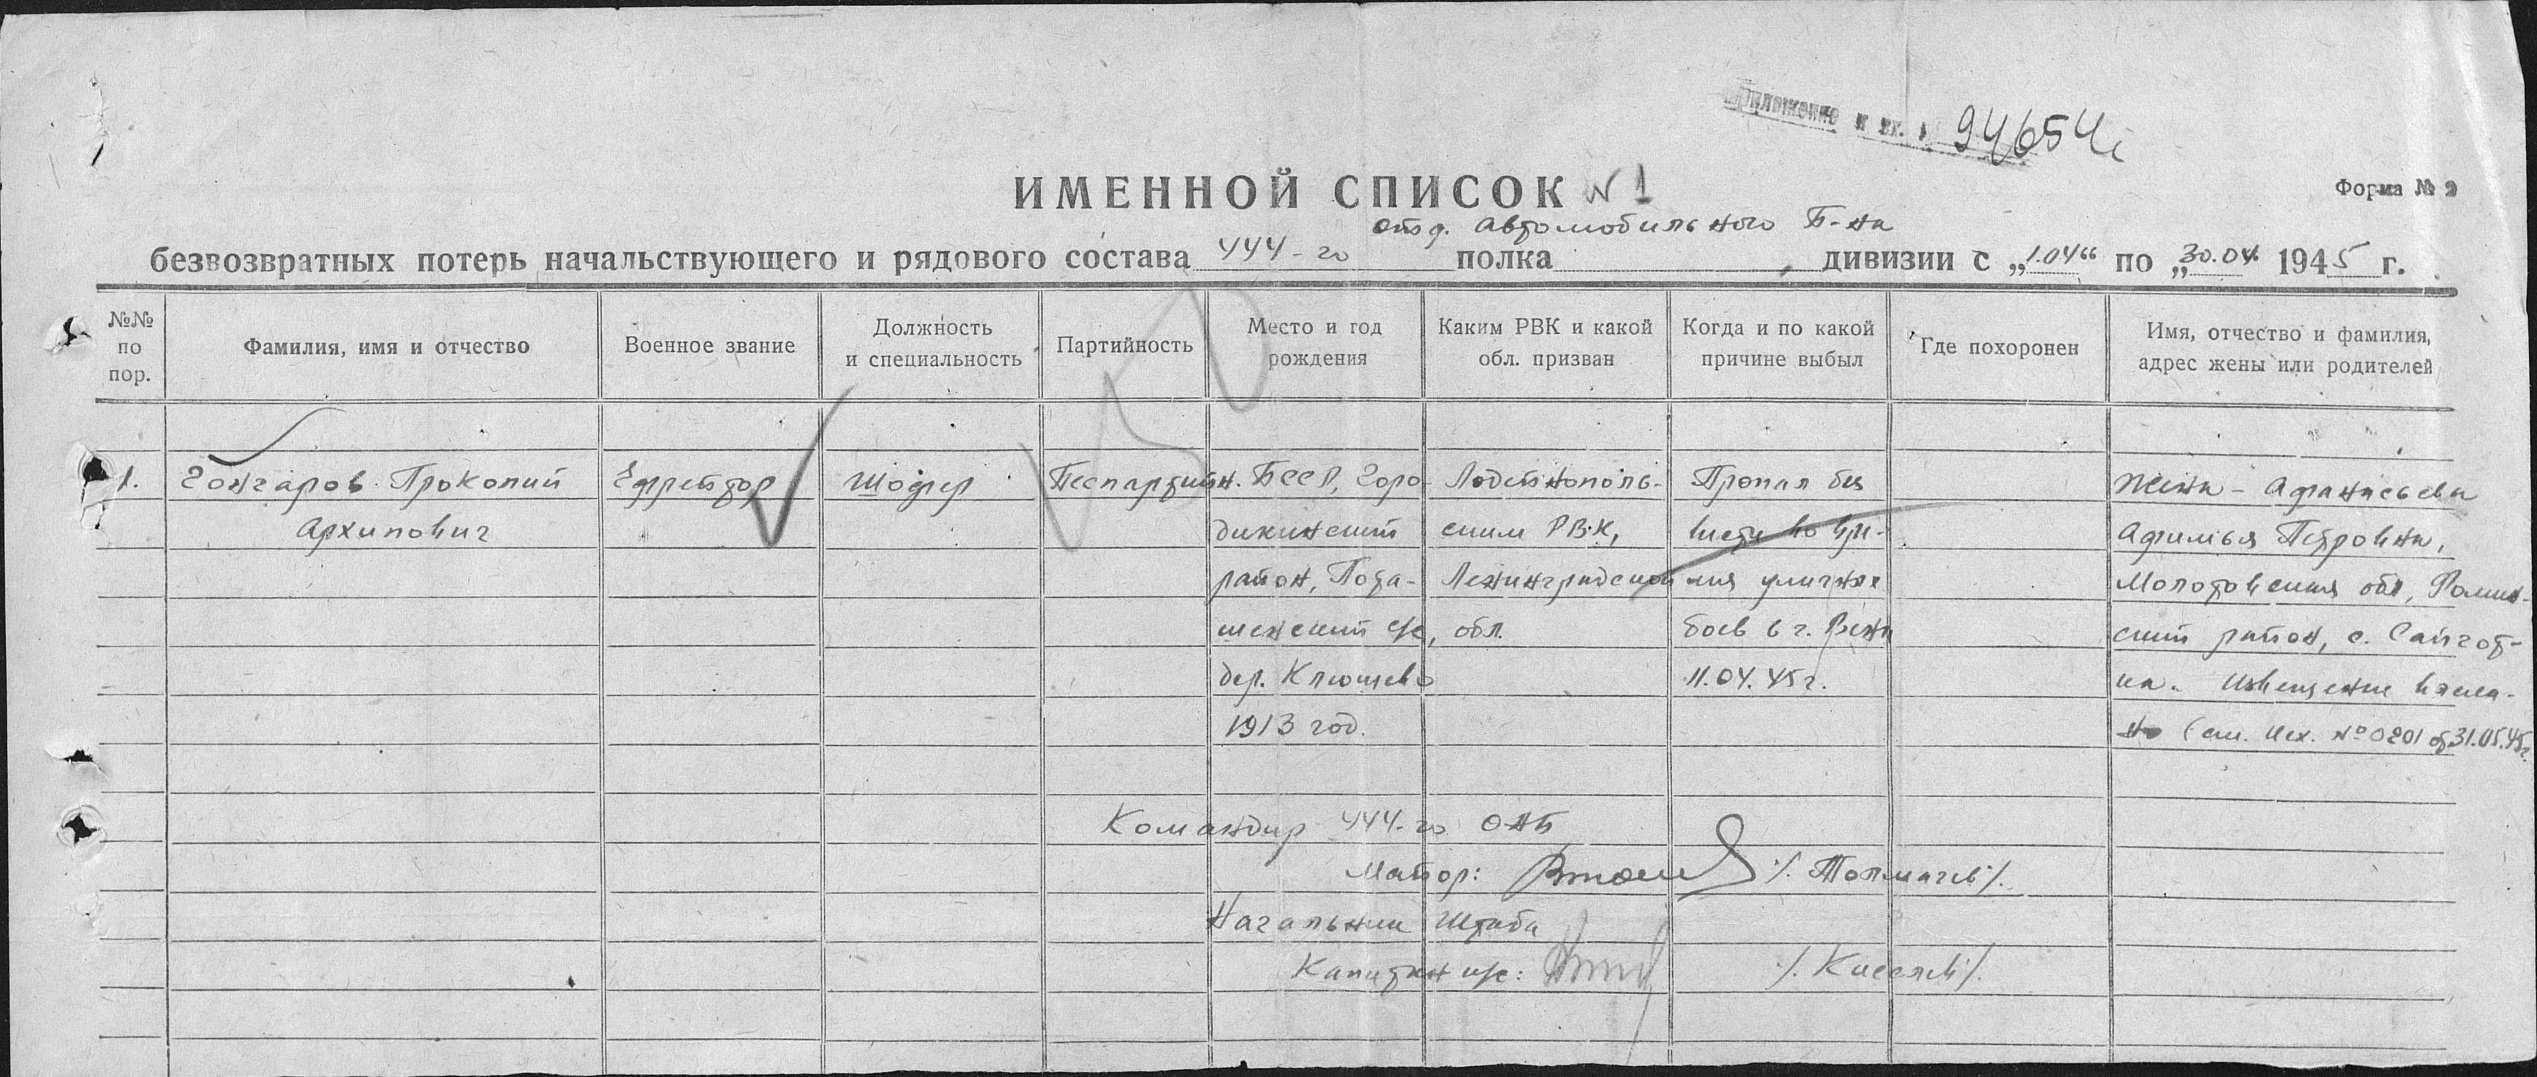 Приложение к вх. 94654с
ИМЕННОЙ СПИСОК N 1
Форма № 2
отд. Автомобильного Б-на
безвозвратных потерь начальствующего и рядового состава 444-го полка , дивизии с „1.04“ по „30.04 1945 г.
№№ по пор.
Фамилия, имя и отчество
Военное звание
Должность и специальность
Партийность
Место и год рождения
Каким РВК и какой обл. призван
Когда и по какой причине выбыл
Где похоронен
Имя, отчество и фамилия, адрес жены или родителей
1.
Гончаров Прокопий
Архипович
Ефрейтор
Шофер
Беспартийн.
БССР, Горо-
докинский
район, Пота-
шенский с/с,
дер. Клюшево
1913 год.
Лодейнополь-
ским РВК,
Ленинградской
обл.
Пропал без
вести во вре-
мя уличных
боев в г. Вена
11.04.45г.
Жена - Афанасьева
Афимья Петровна,
Молотовская обл, Фокин-
ский район, с. Сайгат-
ка. Извещение высла-
но (см. Исх. № 0201 от 31.05.45г.
Командир 444-го ОАБ
Майор: /Толмачев/.
Начальник Штаба
Капитан и/с: /Киселев/.